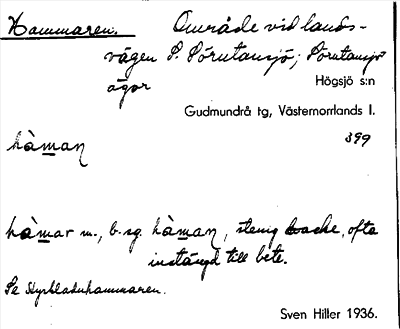 Hammaren. Område vid lands-
vägen S. Sörutansjö; Sörutansjö
ägor
Högsjö s:n
Gudmundrå tg, Västernorrlands l.
399
hàman
hàmar m., b. sg. hàman, stenig backe, ofta
instängd till bete.
Se
Sven Hiller 1936.